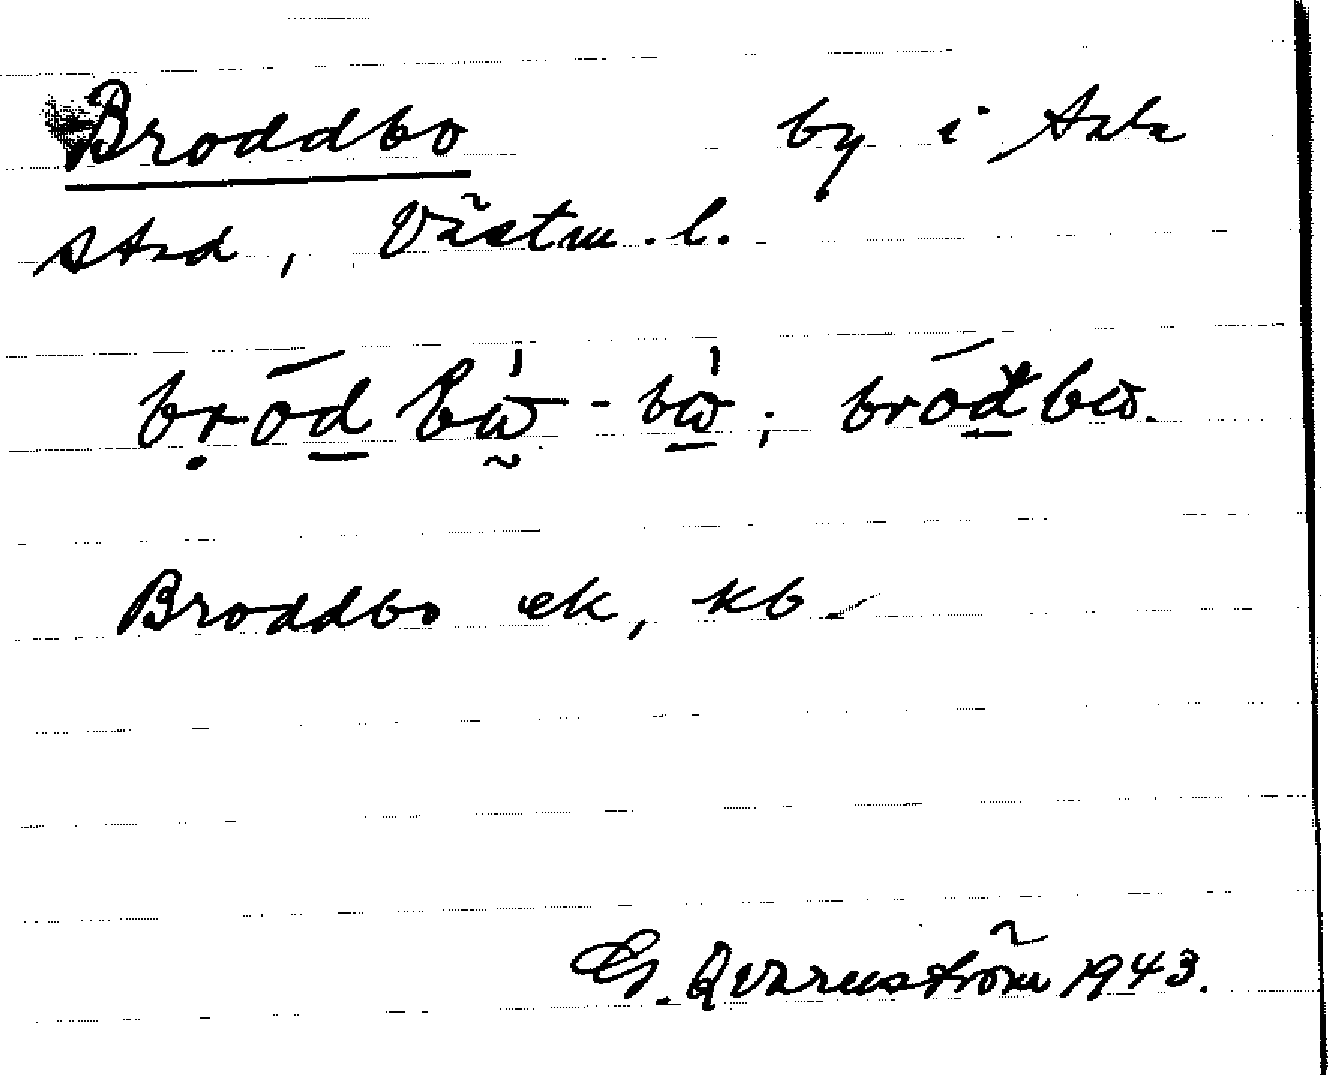 Broddbo by i Sala
stad, Västm. l.
bród bὼ - bὼ; bródbω.
Broddbo ek, kb.
G. Qvarnström 1943.